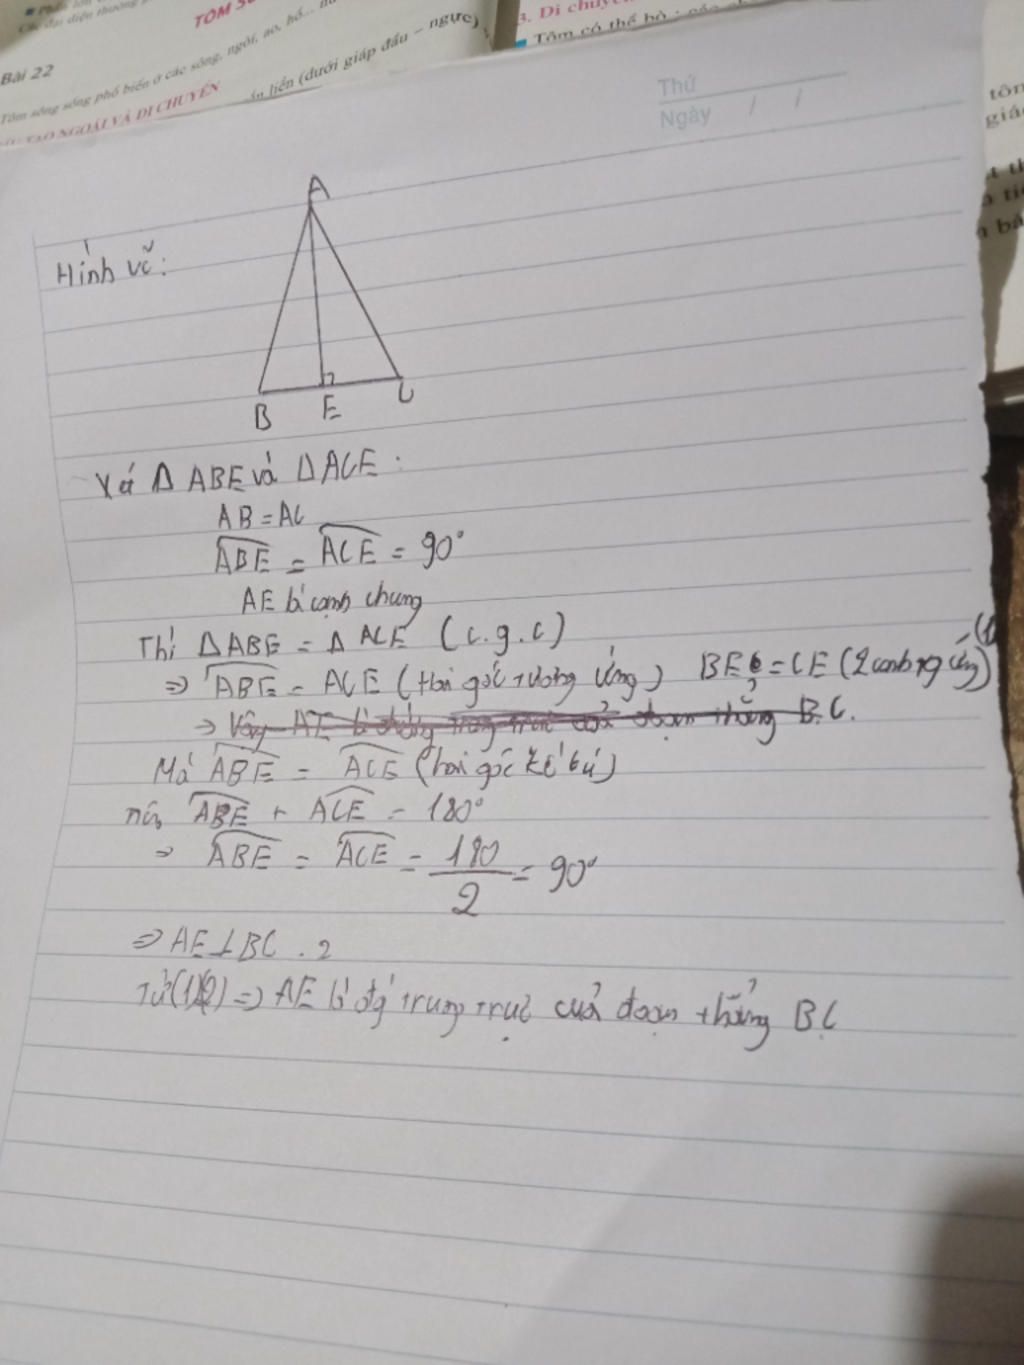 Bài 22
TÔM S
3. Di chuy
Tôm sông sống phổ biến ở các sông, ngòi, ao, hồ...
ần liền (dưới giáp đầu – ngực)
TẠO NGOÀI VÀ DI CHUYỂN
Tôm có thể bò :
tôm
giá
Thứ
Ngày / /
A
Hình vẽ:
B E C
Xét Δ ABE và Δ ACE :
AB = AC
ABE = ACE = 90°
AE là cạnh chung
Thì Δ ABE = Δ ACE (c.g.c)
=> ABE = ACE (Hai góc tương ứng) BE = CE (2 cạnh tg ứng) (1)
=> Vậy AE là đường trung trực của đoạn thẳng BC.
Mà ABE = ACE (hai góc kề bù)
nên ABE + ACE = 180°
=> ABE = ACE = 180/2 = 90°
=> AE ⊥ BC . 2
Từ (1)(2) => AE là đg trung trực của đoạn thẳng BC